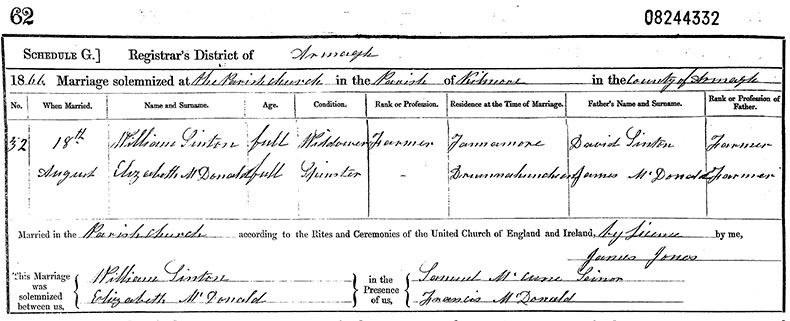 62 08244332
SCHEDULE G.] Registrar's District of Armagh
1866. Marriage solemnized at the Parish church in the Parish of Kilmore in the County of Armagh
No. When Married. Name and Surname. Age. Condition. Rank or Profession. Residence at the Time of Marriage. Father's Name and Surname. Rank or Profession of Father.
52 18th William Sinton full Widower Farmer David Sinton Farmer
August Elizabeth McDonald full Spinster - James McDonald Farmer
Married in the Parish church according to the Rites and Ceremonies of the United Church of England and Ireland, by licence by me,
James Jones
This Marriage was solemnized between us, William Sinton in the Presence of us, Samuel McCune Seinor
Elizabeth McDonald Francis McDonald